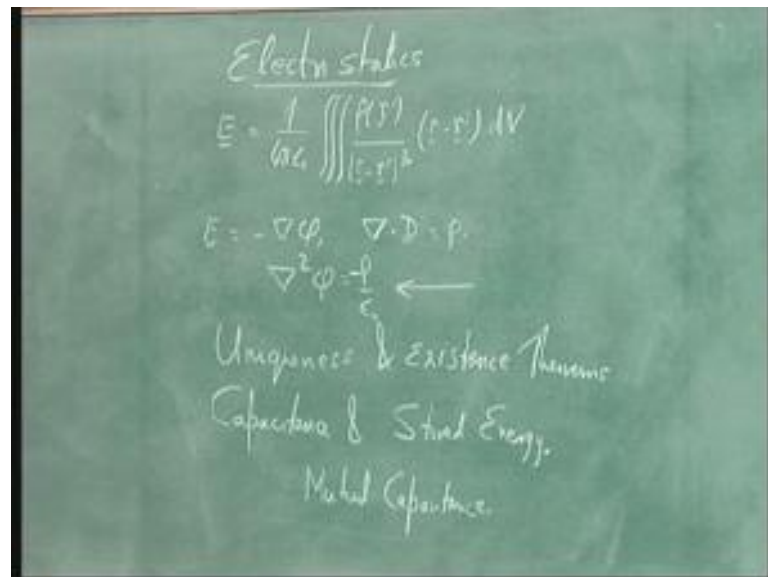 Electrostatics
E = 1/4πε₀ ∭ ρ(r') / |r-r'|³ (r-r') dV
E = -∇φ, ∇·D = ρ.
∇²φ = -ρ/ε₀ ←
Uniqueness & Existence Theorems
Capacitance & Stored Energy.
Mutual Capacitance.